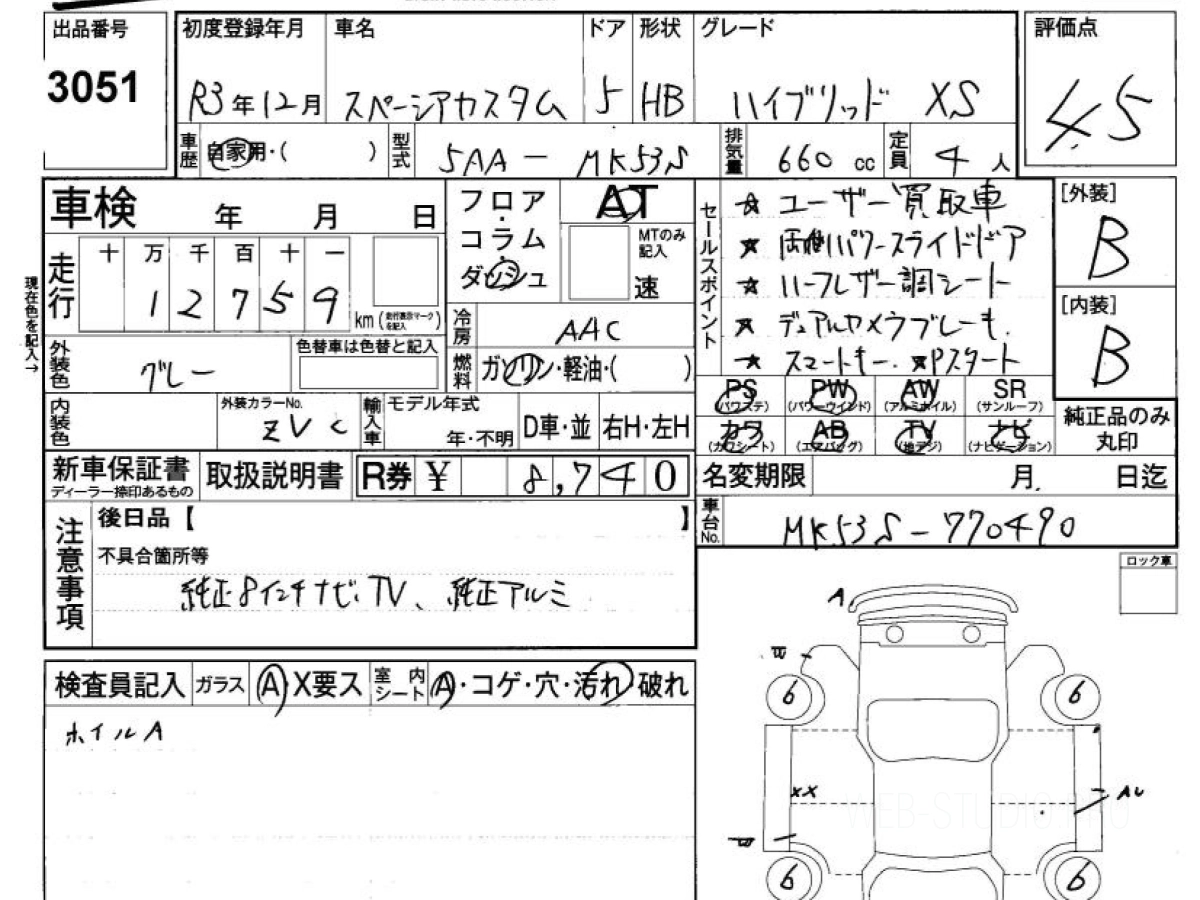 出品番号
3051
初度登録年月
R3年12月
車名
スペーシアカスタム
ドア
5
形状
HB
グレード
ハイブリッド XS
評価点
4.5
車歴
自家用・( )
型式
5AA - MK53S
排気量
660 cc
定員
4 人
車検 年 月 日
フロア・コラム・ダッシュ
AT
MTのみ記入
速
セールスポイント
★ ユーザー買取車
★ 両側パワースライドドア
★ ハーフレザー調シート
★ デュアルカメラブレーキ.
★ スマートキー. ★Pスタート
[外装]
B
[内装]
B
現在色を記入→
走行
十 万 千 百 十 一
1 2 7 5 9
km (走行表示マークを記入)
冷房
AAC
外装色
グレー
色替車は色替と記入
燃料
ガソリン・軽油・( )
PS
(パワステ)
PW
(パワーウインド)
AW
(アルミホイル)
SR
(サンルーフ)
カワ
(カワシート)
AB
(エアバッグ)
TV
(地デジ)
ナビ
(ナビゲーション)
純正品のみ
丸印
内装色
外装カラーNo.
ZVC
輸入車
モデル年式
年・不明
D車・並
右H・左H
新車保証書
ディーラー捺印あるもの
取扱説明書
R券 ¥ 8,740
名変期限 月. 日迄
車台No.
MK53S-770490
注意事項
後日品【 】
不具合箇所等
純正8インチナビ.TV、純正アルミ
ロック車
検査員記入
ガラス
A・X要ス
室内シート
A・コゲ・穴・汚れ・破れ
ホイルA
A
6
6
XX
AU
6
6
WEB-STUDIO.PRO